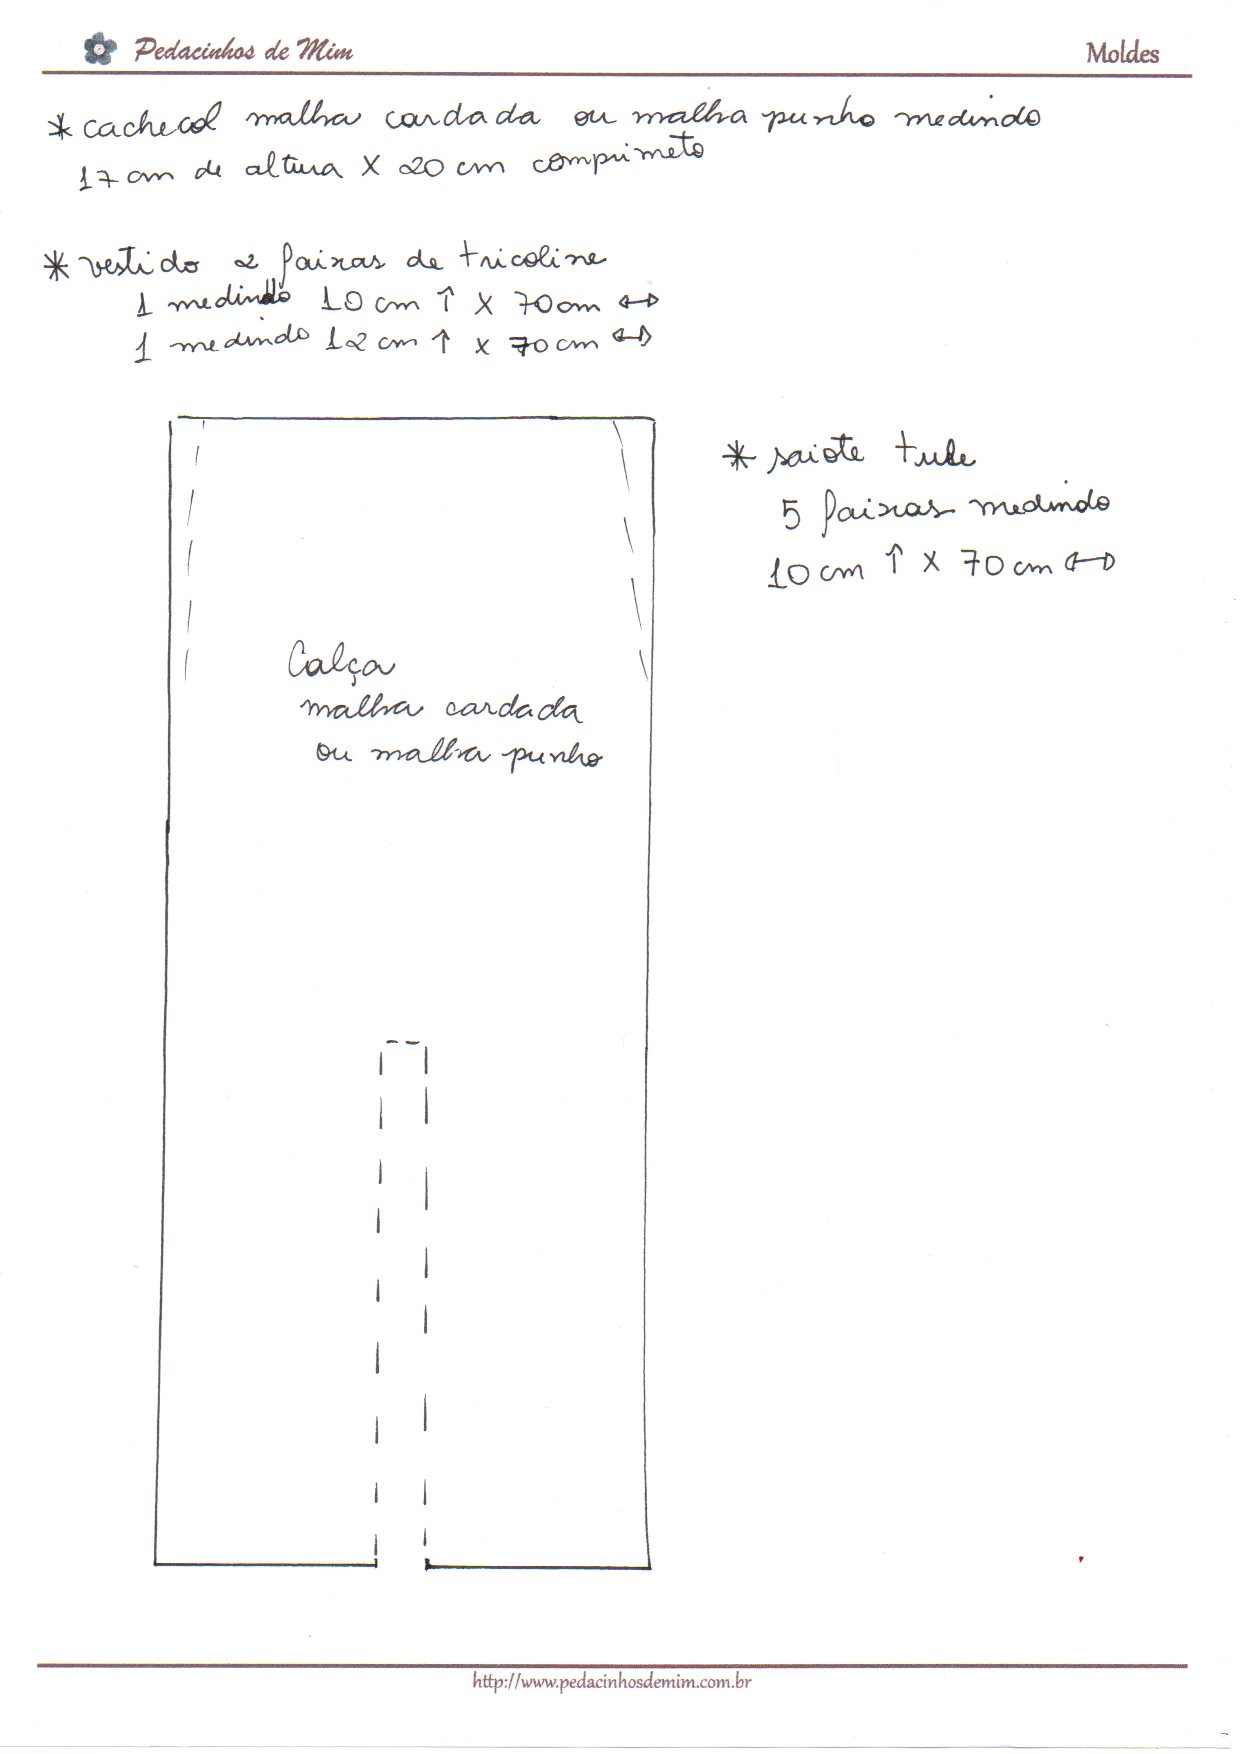 Pedacinhos de Mim
Moldes
* cachecol malha cardada ou malha punho medindo
17 cm de altura X 20 cm comprimeto
* vestido 2 faixas de tricoline
1 medindo 10 cm ↑ X 70 cm ↔
1 medindo 12 cm ↑ x 70 cm ↔
* saiote tule
5 faixas medindo
10 cm ↑ X 70 cm ↔
Calça
malha cardada
ou malha punho
http://www.pedacinhosdemim.com.br